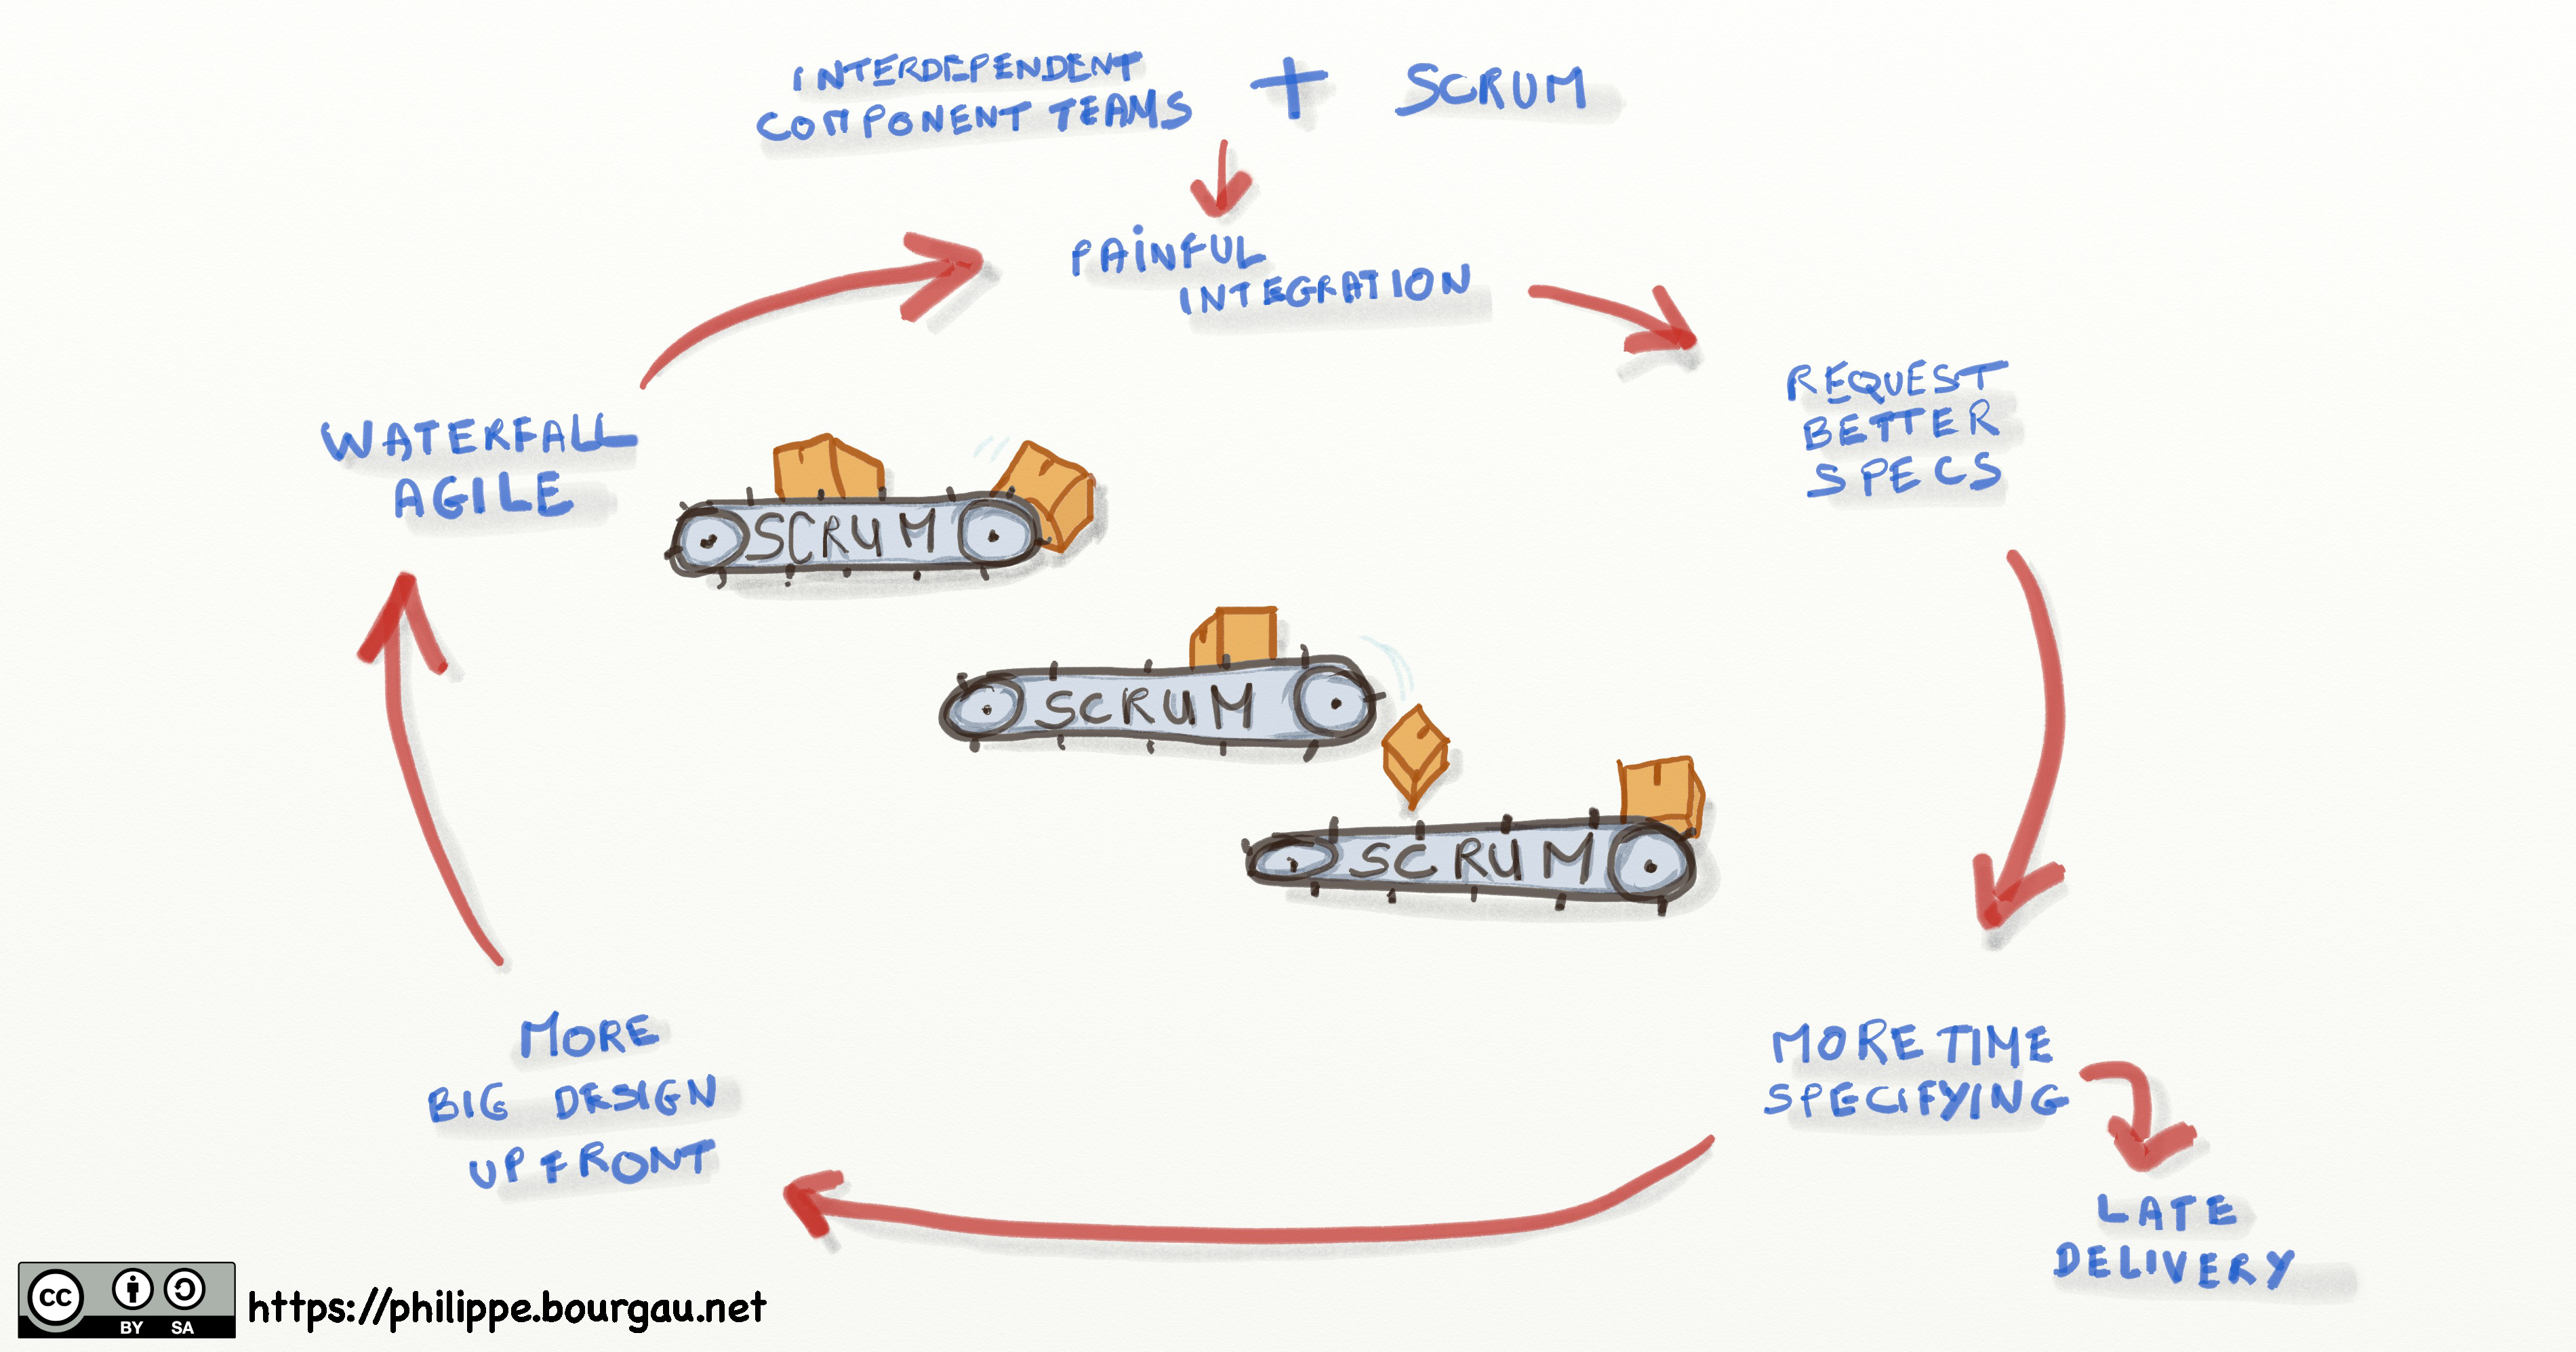 INTERDEPENDENT
COMPONENT TEAMS
+ SCRUM
PAINFUL
INTEGRATION
REQUEST
BETTER
SPECS
MORE TIME
SPECIFYING
LATE
DELIVERY
MORE
BIG DESIGN
UPFRONT
WATERFALL
AGILE
SCRUM
SCRUM
SCRUM
cc BY SA
https://philippe.bourgau.net